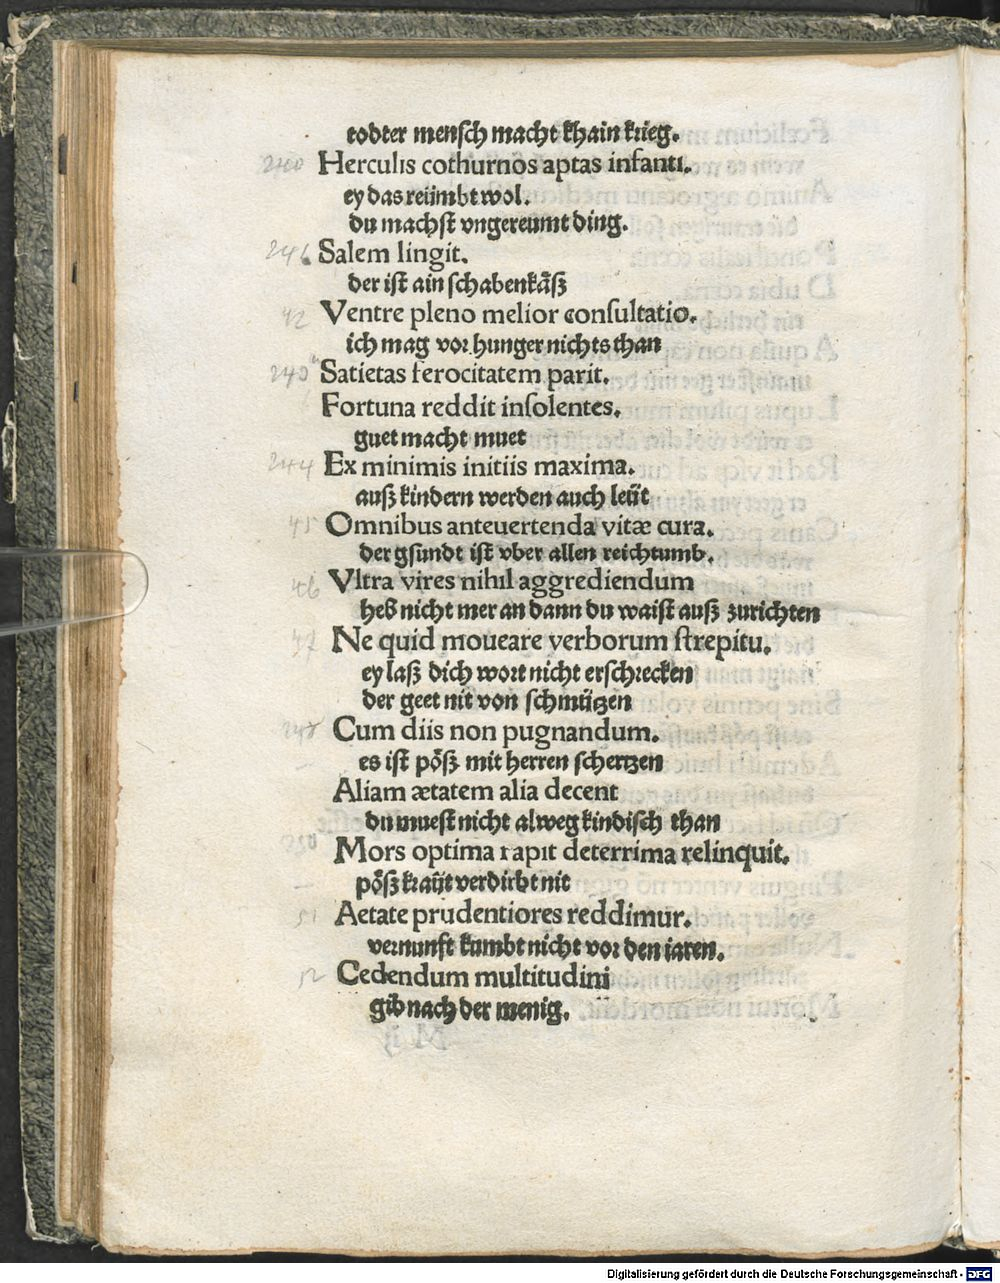 todter mensch macht khain krieg.
240 Herculis cothurnos aptas infanti.
ey das reümbt wol.
du machst vngereumt ding.
246. Salem lingit.
der ist ain schabenkäß
42 Ventre pleno melior consultatio.
ich mag vor hunger nichts than
240 Satietas ferocitatem parit.
Fortuna reddit insolentes.
guet macht muet
244 Ex minimis initiis maxima.
auß kindern werden auch leüt
45 Omnibus anteuertenda vitæ cura.
der gsundt ist vber allen reichtumb.
46 Vltra vires nihil aggrediendum
heb nicht mer an dann du waist auß zurichten
47 Ne quid moueare verborum strepitu.
ey laß dich wort nicht erschrecken
der geet nit von schmützen
248 Cum diis non pugnandum.
es ist pöß mit herren schertzen
Aliam ætatem alia decent
du muest nicht alweg kindisch than
250 Mors optima rapit deterrima relinquit.
pöß kraüt verdirbt nit
51 Aetate prudentiores reddimur.
vernunft kumbt nicht vor den iaren.
52 Cedendum multitudini
gib nach der menig.
Digitalisierung gefördert durch die Deutsche Forschungsgemeinschaft - DFG